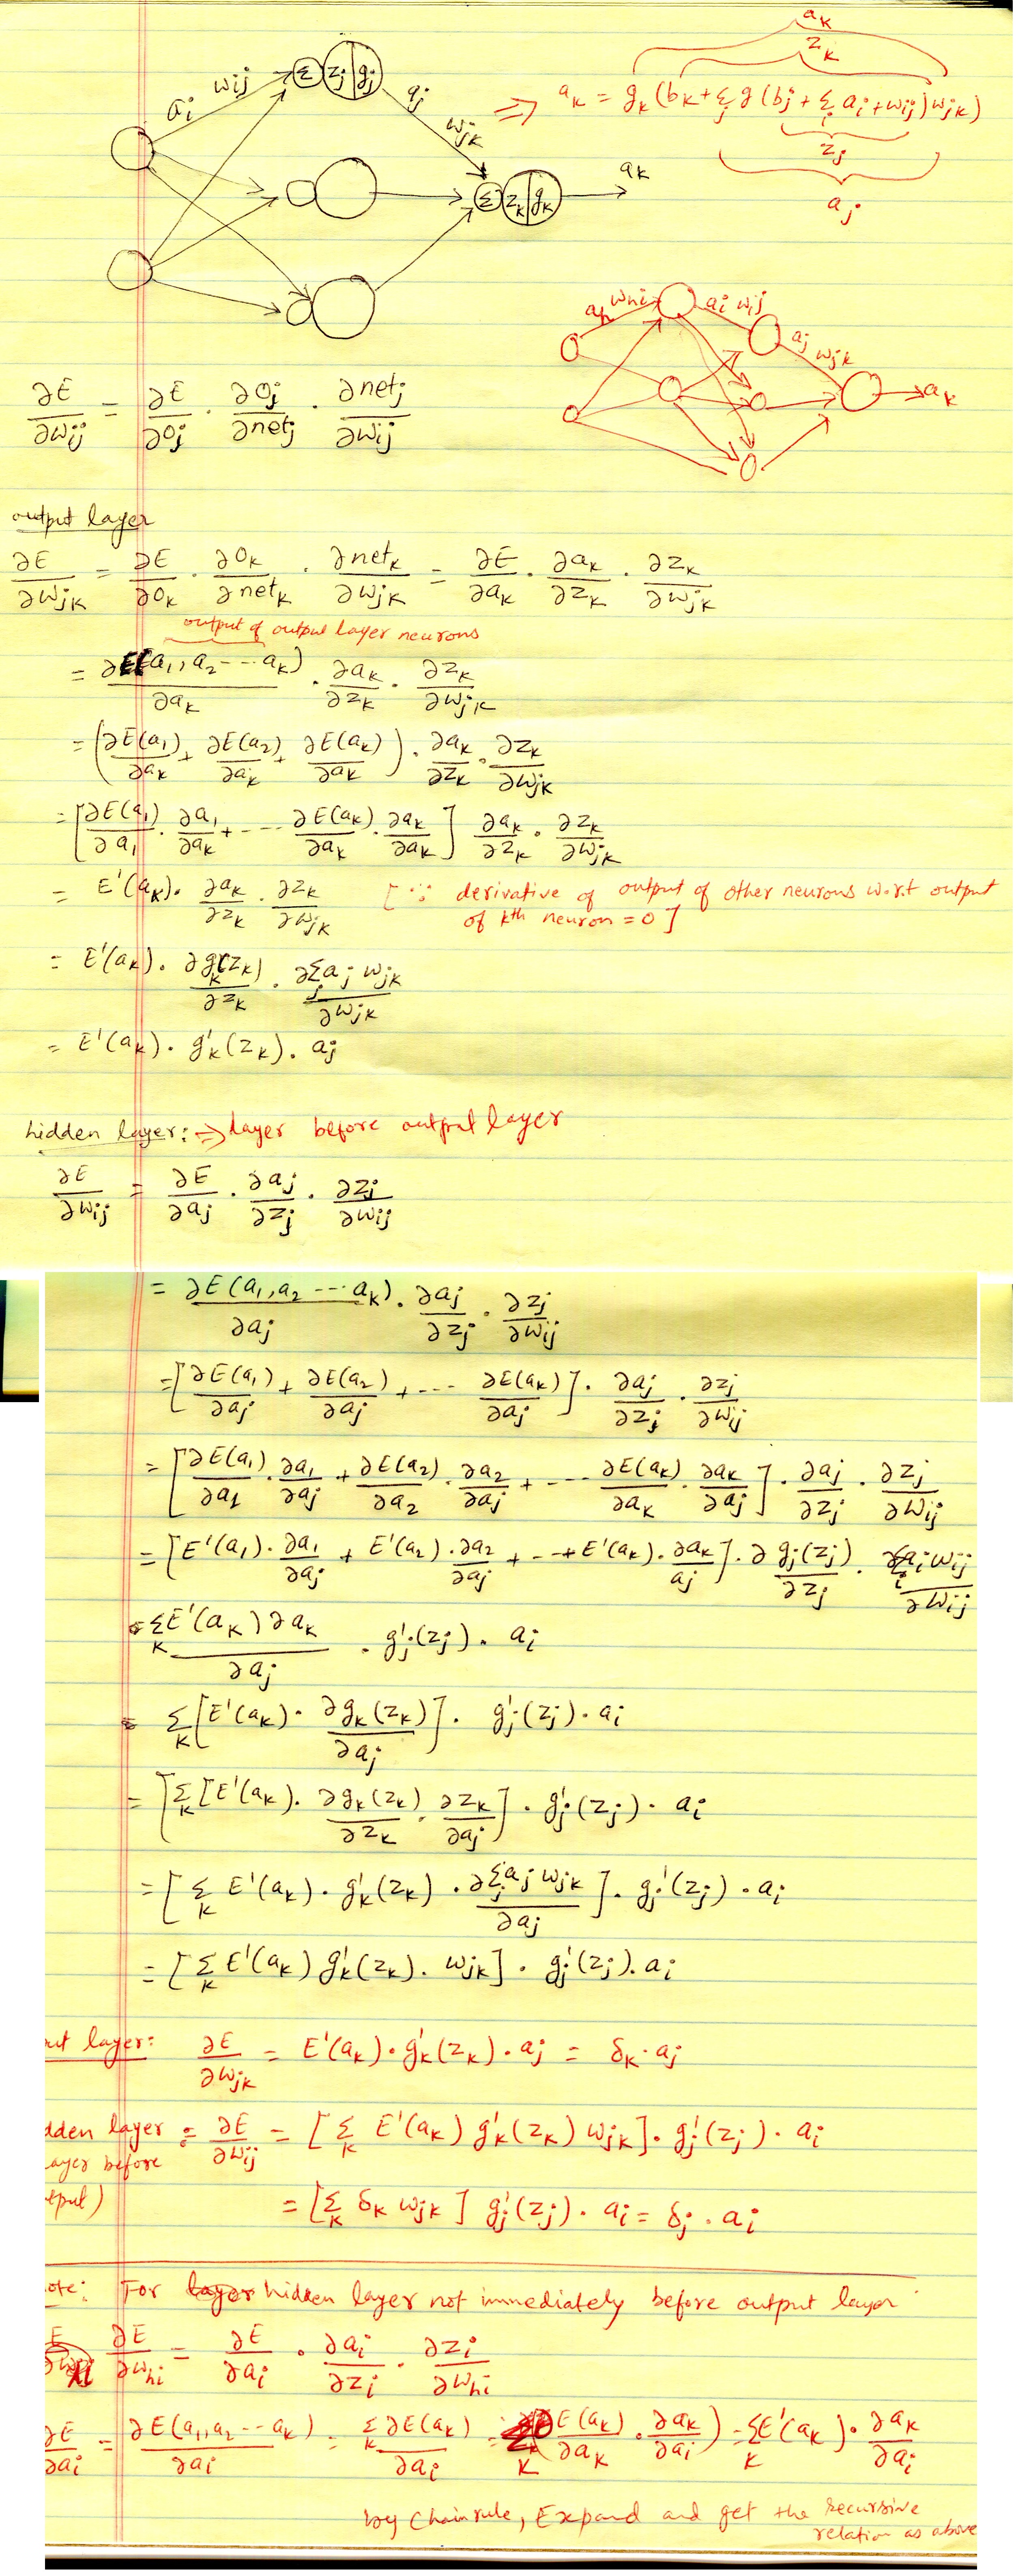 a_i w_ij Σ z_j g_j a_j w_jk Σ z_k g_k a_k
a_k
z_k
⇒ a_k = g_k(b_k + Σ_j g(b_j + Σ_i a_i + w_ij) w_jk)
z_j
a_j
a_h w_hi a_i w_ij a_j w_jk a_k
∂E/∂w_ij = ∂E/∂o_j · ∂o_j/∂net_j · ∂net_j/∂w_ij
output layer
∂E/∂w_jk = ∂E/∂o_k · ∂o_k/∂net_k · ∂net_k/∂w_jk = ∂E/∂a_k · ∂a_k/∂z_k · ∂z_k/∂w_jk
output of output layer neurons
= ∂E(a_1, a_2 --- a_k)/∂a_k · ∂a_k/∂z_k · ∂z_k/∂w_jk
= (∂E(a_1)/∂a_k + ∂E(a_2)/∂a_k + ∂E(a_k)/∂a_k) · ∂a_k/∂z_k · ∂z_k/∂w_jk
= [∂E(a_1)/∂a_1 · ∂a_1/∂a_k + --- ∂E(a_k)/∂a_k · ∂a_k/∂a_k] ∂a_k/∂z_k · ∂z_k/∂w_jk
= E'(a_k) · ∂a_k/∂z_k · ∂z_k/∂w_jk [∵ derivative of output of other neurons w.r.t output
of kth neuron = 0]
= E'(a_k) · ∂g_k(z_k)/∂z_k · ∂Σ_j a_j w_jk/∂w_jk
= E'(a_k) · g'_k(z_k) · a_j
hidden layer: ⇒ layer before output layer
∂E/∂w_ij = ∂E/∂a_j · ∂a_j/∂z_j · ∂z_j/∂w_ij
= ∂E(a_1, a_2 --- a_k)/∂a_j · ∂a_j/∂z_j · ∂z_j/∂w_ij
= [∂E(a_1)/∂a_j + ∂E(a_2)/∂a_j + --- ∂E(a_k)/∂a_j] · ∂a_j/∂z_j · ∂z_j/∂w_ij
= [∂E(a_1)/∂a_1 · ∂a_1/∂a_j + ∂E(a_2)/∂a_2 · ∂a_2/∂a_j + --- ∂E(a_k)/∂a_k · ∂a_k/∂a_j] · ∂a_j/∂z_j · ∂z_j/∂w_ij
= [E'(a_1) · ∂a_1/∂a_j + E'(a_2) · ∂a_2/∂a_j + --+ E'(a_k) · ∂a_k/a_j] · ∂g_j(z_j)/∂z_j · ∂Σ_i a_i w_ij/∂w_ij
= Σ_k E'(a_k) ∂a_k/∂a_j · g'_j(z_j) · a_i
= Σ_k [E'(a_k) · ∂g_k(z_k)/∂a_j] · g'_j(z_j) · a_i
= [Σ_k [E'(a_k) · ∂g_k(z_k)/∂z_k · ∂z_k/∂a_j] · g'_j(z_j) · a_i
= [Σ_k E'(a_k) · g'_k(z_k) · ∂Σ_j a_j w_jk/∂a_j] · g'_j(z_j) · a_i
= [Σ_k E'(a_k) g'_k(z_k) · w_jk] · g'_j(z_j) · a_i
ut layer: ∂E/∂w_jk = E'(a_k) · g'_k(z_k) · a_j = δ_k · a_j
dden layer : ∂E/∂w_ij = [Σ_k E'(a_k) g'_k(z_k) w_jk] · g'_j(z_j) · a_i
ayer before
tput) = [Σ_k δ_k w_jk] g'_j(z_j) · a_i = δ_j · a_i
ote: For hidden layer not immediately before output layer
∂E/∂w_hi = ∂E/∂a_i · ∂a_i/∂z_i · ∂z_i/∂w_hi
∂E/∂a_i = ∂E(a_1, a_2 -- a_k)/∂a_i = Σ_k ∂E(a_k)/∂a_i = Σ_k (∂E(a_k)/∂a_k · ∂a_k/∂a_i) = Σ_k E'(a_k) · ∂a_k/∂a_i
by Chainrule, Expand and get the recursive
relation as above